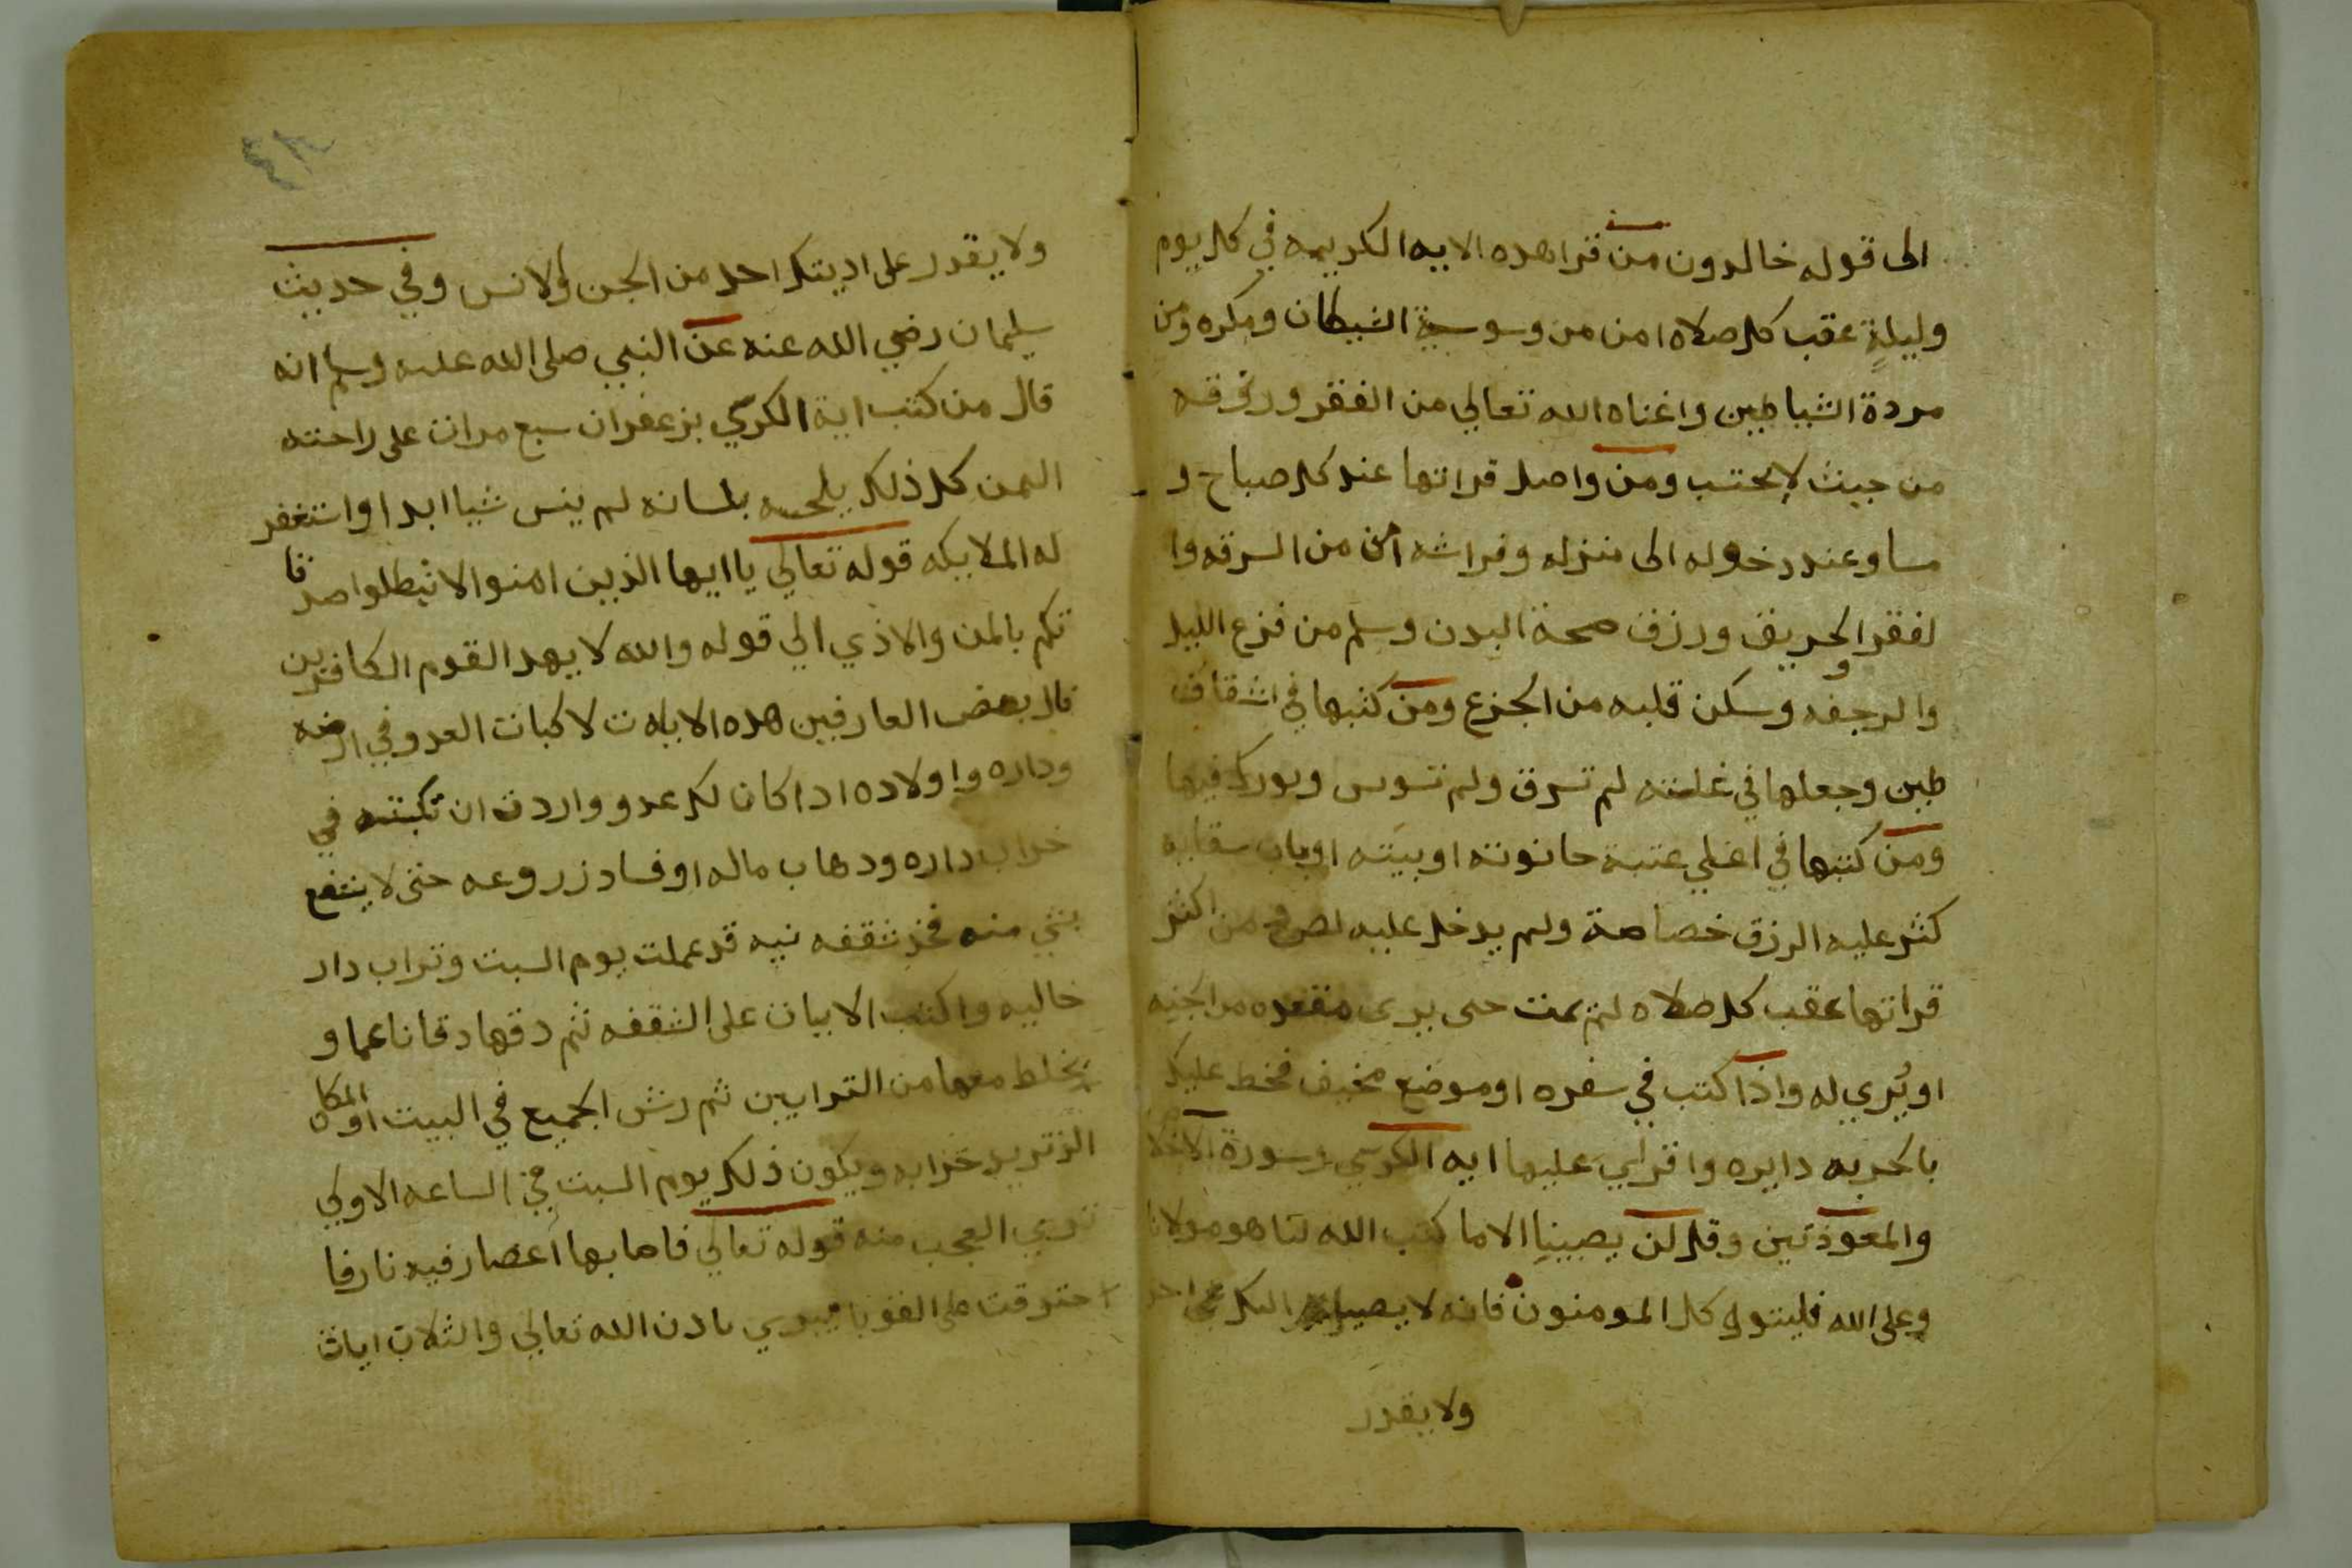 الى قوله خالدون من قرا هده الايه الكريمه في كل يوم
وليلةٍ عقب كل صلاه امن من وسوسة الشيطان ومكره ومن
مردة الشياطين واغناه الله تعالي من الفقر ورزقه
من حيث لايحتسب ومن واصل قراتها عند كل صباح و
مسا وعند دخوله الى منزله وفراشه امن من السرقه وا
لفقر والحريق ورزق صحة البدن وسلم من فزع الليل
والرجفه وسكن قلبه من الجزع ومن كتبها في اشقاف
طين وجعلها في غلته لم تسرق ولم تسوس وبورك فيها
ومن كتبها في اعلي عتبة حانوته او بيته او باب
كثر عليه الرزق خصاصة ولم يدخل عليه لص ومن اكثر
قراتها عقب كل صلاه لم يمت حتى يرى مقعده من الجنه
او يُري له واذا كنت في سفره او موضع مخيف فخط عليك
بالحربه دايره واقراي عليها ايه الكرسي وسورة الاخلا
والمعوذتين وقل لن يصيبنا الا ما كتب الله لنا هو مولانا
وعلى الله فليتوكل المومنون فانه لا اليك شي احد
ولا يقدر
ولا يقدر على اديتك احد من الجن والانس وفي حديث
سليمان رضي الله عنه عن النبي صلى الله عليه وسلم انه
قال من كتب اية الكرسي بزعفران سبع مرات على راحته
اليمن كل ذلك يلحسه بلسانه لم ينس شيا ابدا واستغفر
له الملايكه قوله تعالي ياايها الذين امنوا لا تبطلوا صدقا
تكم بالمن والاذي الي قوله والله لا يهد القوم الكافرين
قال بعض العارفين هده الايات لا كبات العدو في ارضه
وداره واولاده ادا كان لك عدو واردت ان تكبته في
خراب داره ودهاب ماله او فساد زروعه حتى لا ينتفع
بشي منه فخد شقفه نيه قد عملت يوم السبت وتراب دار
خاليه واكتب الايات على الشقفه ثم دقها دقا ناعما و
يخلط معها من الترابين ثم رش الجميع في البيت او المكان
الذ تريد خرابه ويكون ذلك يوم السبت في الساعه الاولي
تري العجب منه قوله تعالي فاصابها أعصار فيه نار فا
حترقت على القوبا يبري بادن الله تعالي والثلاث ايات